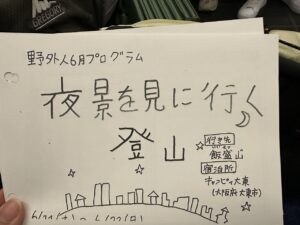 GREGORY
野外人6月プログラム
夜景を見に行く
登山
行き先
飯盛山
宿泊所
キャンピィ大東
(大阪府大東市)